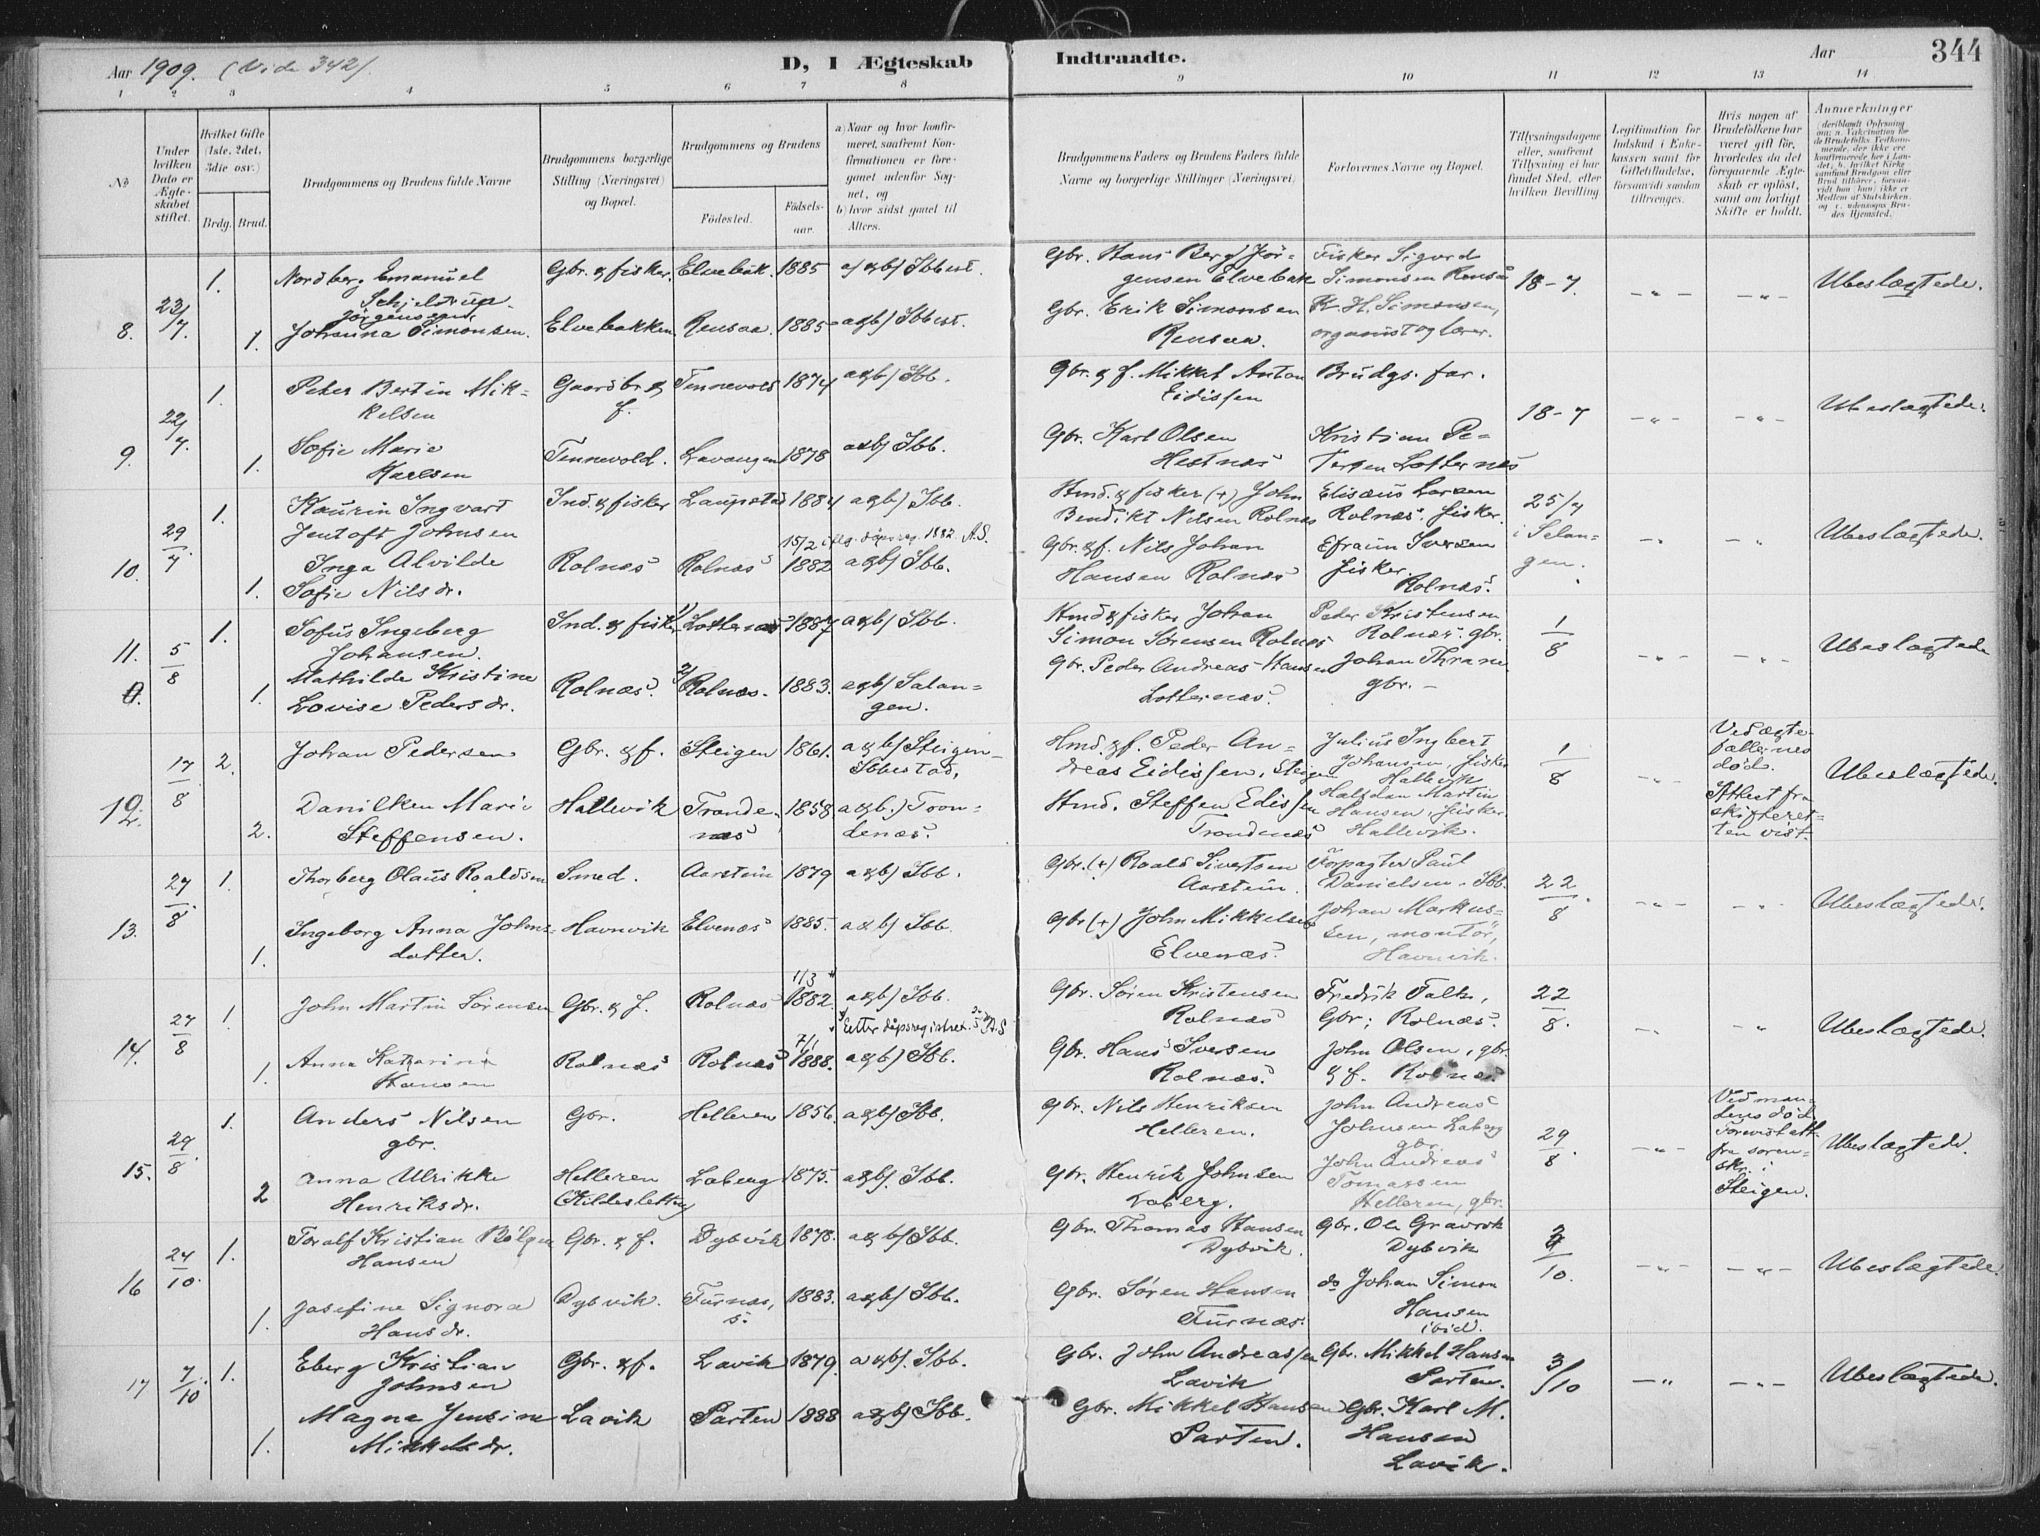 Aar 1909. (Vide 342).
D, I Ægteskab
Indtraadte.
Aar
344
1 2 3 4 5 6 7 8 9 10 11 12 13 14
No
Under hvilken Dato er Ægte-skabet stiftet.
Hvilket Gifte (1ste, 2det, 3die osv.)
Brdg. Brud.
Brudgommens og Brudens fulde Navne
Brudgommens borgerlige Stilling (Næringsvei) og Bopæl.
Brudgommens og Brudens
Fødested.
Fødsels-aar.
a) Naar og hvor konfir-meret, saafremt Kon-firmationen er fore-gaaet udenfor Sog-net, og
b) hvor sidst gaaet til Alters.
Brudgommens Faders og Brudens Faders fulde Navne og borgerlige Stillinger (Næringsvei)
Forlovernes Navne og Bopæl.
Tillysningsdagene eller, saafremt Tillysning ei har fundet Sted, efter hvilken Bevilling
Legitimation for Indskud i Enke-kassen samt for Giftetilladelse, forsaavidt saadan tiltrænges.
Hvis nogen af Brudefolkene har været gift før, hvorledes da det foregaaende Ægte-skab er opløst, samt om lovligt Skifte er holdt.
Anmerkninger
(deriblandt Oplysning om: a. Vakcination for de Brudefolks Vedkom-mende, der ikke ere konfirmerede her i Lan-det, b. hvilket Kirke-samfund Brudgom eller Brud tilhører, forsaa-vidt han (hun) ikke er Medlem af Statskirken, og c. udensogns Bru-des Hjemsted.
8. 23/7. 1. Nordberg Emanuel Schjelderup Jörgensen. Gbr. & fisker. Elvebak. 1885 a) & b) Ibbest. Gbr. Hans Berg Jör-gensen Elvebak Fisker Sigurd Simonsen Rensaa 18-7. -"- -"- Ubeslægtede.
1. Johanna Simonsen. Elvebakken Rensaa 1885 a&b) Ibbest. Gbr. Erik Simonsen Rensaa. K. H. Simonsen, organist og lærer.
9. 22/7. 1. Peter Bertin Mik-kelsen Gaardbr. & f. Tennevold 1874 a&b) Ibb. Gbr. & f. Mikkel Anton Eidissen Brudgs. far. 18-7 -"- -"- Ubeslægtede.
1. Sofie Marie Karlsen Tennevold. Lavangen 1878 a&b) Ibb. Gbr. Karl Olsen Hestnæs Kristian Pe-tersen Lotternes
10. 29/7 1. Kaurin Ingvart Jentoft Johnsen Ind. & fisker Laupstad 1884 a&b) Ibb. Hmd. & fisker (+) John Bendikt Nilsen Rolnæs Elisæus Larsen Rolnæs. fisker. 25/7 i Salan-gen. -"- -"- Ubeslægtede.
15/2 iflg. dåpsreg. 1882. A.S.
1. Inga Alvilde Sofie Nilsdr. Rolnæs Rolnæs 1882 a&b) Ibb. Gbr. & f. Nils Johan Hansen Rolnæs Efraim Iversen fisker. Rolnæs.
11. 5/8 1. Sofus Ingeberg Johansen. Ind. & fisker 1) Lotternæs 1887 a&b) Ibb. Hmd & fisker Johan Simon Sørensen Rolnæs Peder Kristensen Rolnæs. gbr. 1/8 -"- -"- Ubeslægtede
1. Mathilde Kristine Lovise Pedersdr. Rolnæs. 2) Rolnæs. 1883. a&b) Salan-gen. Gbr. Peder Andreas Hansen Lotternæs. Johan Thrane gbr.
12. 17/8 2. Johan Pedersen Gbr. & f. Steigen 1861. a&b) Steigen-Ibbestad. Hmd. & f. Peder An-dreas Eidissen, Steigen Julius Ingbert Johansen, fisker Hallevik 1/8 -"- Ved ægte-fællernes død. Attest fra skifteret-ten vist. Ubeslægtede.
2. Danilken Marie Steffensen. Hallevik Tronde-næs 1858 a&b.) Tron-denæs. Hmd. Steffen Edissen Trondenæs Halfdan Martin Hansen, fisker. Hallevik.
13. 27/8 1. Thorberg Olaus Roaldsen Smed. Aarstein 1879 a&b) Ibb. Gbr. (+) Roald Sivertsen Aarstein. Forpagter Paul Danielsen, Ibb. 22/8. -"- -"- Ubeslægtede.
1. Ingeborg Anna Johns-dotter. Havnvik Elvenæs 1885. a&b) Ibb. Gbr (+) John Mikkelsen Elvenæs. Johan Markus-sen, montör, Havnvik.
14. 27/8 1. John Martin Sørensen Gbr. & f. Rolnæs 11/3 1882. a&b) Ibb. Gbr. Søren Kristensen Rolnæs Fredrik Falk, Gbr; Rolnæs. 22/8. -"- -"- Ubeslægtede.
Efter dåpsregistret. A.S
1. Anna Katharina Hansen Rolnæs Rolnæs 7/1 1888. a&b) Ibb. Gbr. Hans Iversen Rolnæs. John Olsen, gbr. & f. Rolnæs
15. 29/8. 1. Anders Nilsen gbr. Gbr. Helleren 1856. a&b) Ibb. Gbr. Nils Henriksen Helleren. John Andreas Johnsen Laberg gbr. 29/8. -"- Ved man-dens død. Forevist att. fra soren-skr. i Steigen. Ubeslægtede.
2 Anna Ulrikke Henriksdr. Helleren (Kildesletten) Laberg 1875. a&b). Ibb. Gbr. Henrik Johnsen Laberg. John Andreas Tomassen Helleren, gbr.
16 24/10. 1. Toralf Kristian Bölgen Hansen Gbr. & f. Dybvik 1878. a&b) Ibb. Gbr. Thomas Hansen Dybvik. Gbr. Ole Gravrok Dybvik 3/10. -"- -"- Ubeslægtede.
1. Josefine Signora Hansdr. Dybvik. Furnæs, s. 1883. a&b) Ibb. Gbr. Søren Hansen Furnæs. do Johan Simon Hansen ibid.
17 7/10. 1. Eberg Kristian Johnsen Gbr. & f. Lavik 1879. a&b). Ibb. Gbr. John Andreassen Lavik Gbr. Mikkel Hansen Parten. 3/10 -"- -"- Ubeslægtede.
1. Magna Jensine Mikkelsdr. Lavik Parten 1888 a&b) Ibb. Gbr. Mikkel Hansen Parten. Gbr. Karl M. Hansen Lavik.